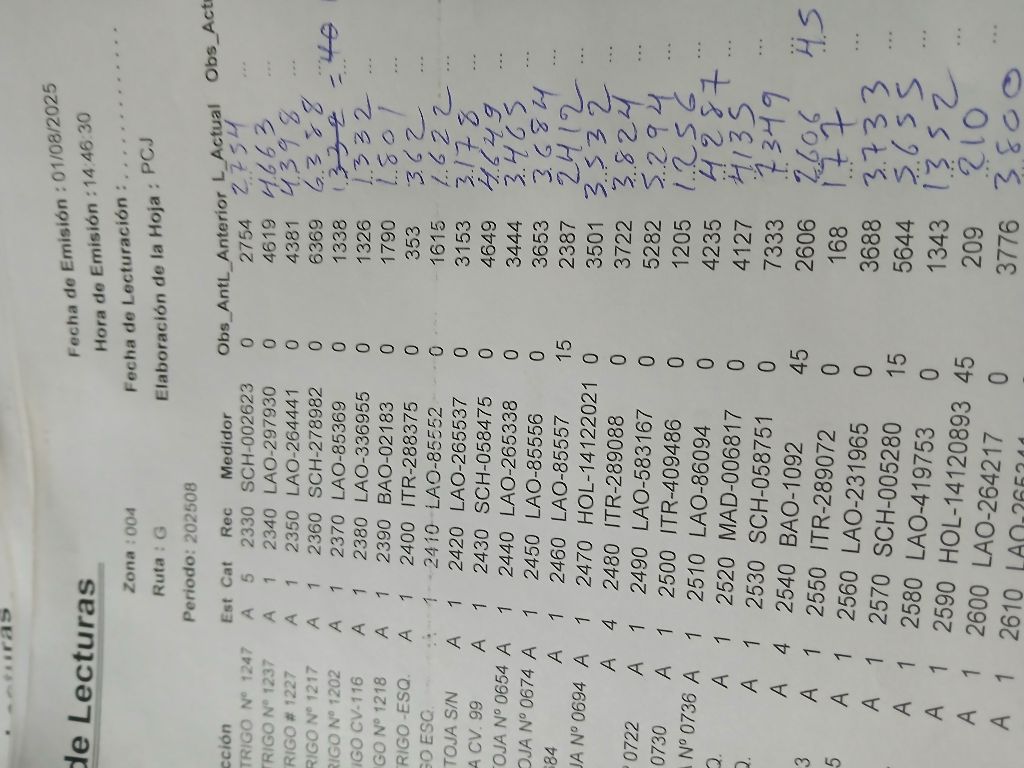 de Lecturas
Fecha de Emisión : 01/08/2025
Hora de Emisión : 14:46:30
Zona : 004 Fecha de Lecturación : ...............
Ruta : G Elaboración de la Hoja : PCJ
Periodo: 202508
cción Est Cat Rec Medidor Obs_Ant L_Anterior L_Actual Obs_Actu
TRIGO Nº 1247 A 5 2330 SCH-002623 0 2754 2754 ...
TRIGO Nº 1237 A 1 2340 LAO-297930 0 4619 4663 ...
RIGO # 1227 A 1 2350 LAO-264441 0 4381 4398 ...
RIGO Nº 1217 A 1 2360 SCH-278982 0 6369 6388 ...
RIGO Nº 1202 A 1 2370 LAO-85369 0 1338 = 40
IGO CV-116 A 1 2380 LAO-336955 0 1326 1332 ...
IGO Nº 1218 A 1 2390 BAO-02183 0 1790 1801 ...
TRIGO -ESQ. A 1 2400 ITR-288375 0 353 362 ...
GO ESQ. 1 2410 LAO-85552 0 1615 1622 ...
TOJA S/N A 1 2420 LAO-265537 0 3153 3178 ...
A CV. 99 A 1 2430 SCH-058475 0 4649 4649 ...
TOJA Nº 0654 A 1 2440 LAO-265338 0 3444 3465 ...
OJA Nº 0674 A 1 2450 LAO-85556 0 3653 3684 ...
684 A 1 2460 LAO-85557 15 2387 2412 ...
JA Nº 0694 A 1 2470 HOL-141122021 0 3501 3532 ...
A 4 2480 ITR-289088 0 3722 3824 ...
0722 A 1 2490 LAO-583167 0 5282 5294 ...
0730 A 1 2500 ITR-409486 0 1205 1256 ...
Nº 0736 A 1 2510 LAO-86094 0 4235 4287 ...
Q. A 1 2520 MAD-006817 0 4127 4135 ...
Q. A 1 2530 SCH-058751 0 7333 7349 ...
A 4 2540 BAO-1092 45 2606 2606 45
3 A 1 2550 ITR-289072 0 168 177 ...
5 A 1 2560 LAO-231965 0 3688 3733 ...
A 1 2570 SCH-005280 15 5644 5655 ...
A 1 2580 LAO-419753 0 1343 1352 ...
A 1 2590 HOL-14120893 45 209 210 ...
A 1 2600 LAO-264217 0 3776 3800 ...
2610